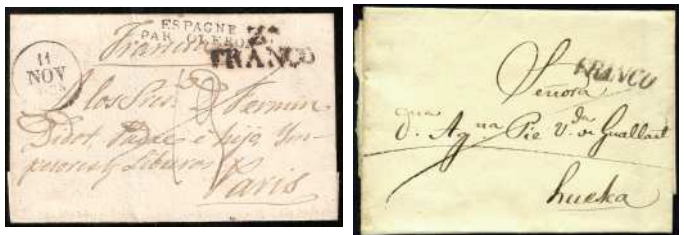 ESPAGNE
PAR OLERON
Z.
FRANCO
11
NOV
A los Sres. D. Fermin
Didot, Padre é hijo Im-
presores y Libreros
Paris
FRANCO
Señora
Pie V.da de Guallart
hueska